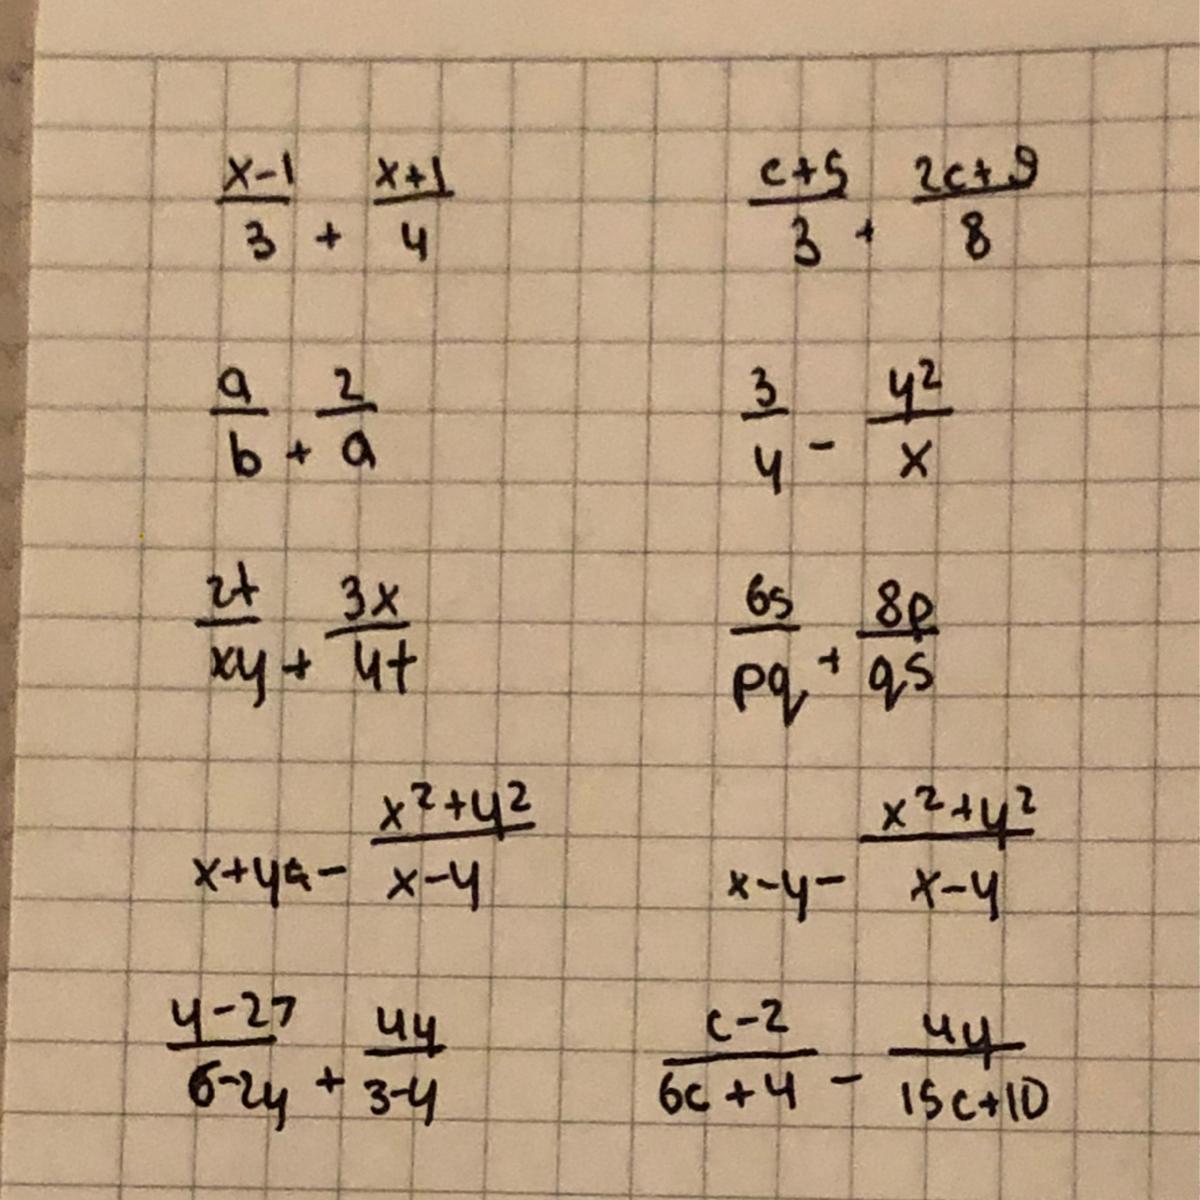 x-1/3 + x+1/4    c+5/3 + 2c+9/8
a/b + 2/a    3/y - y²/x
2t/xy + 3x/yt    6s/pq + 8p/qs
x+y - x²+y²/x-y    x-y - x²+y²/x-y
y-27/6-2y + 4y/3-y    c-2/6c+4 - 4y/15c+10